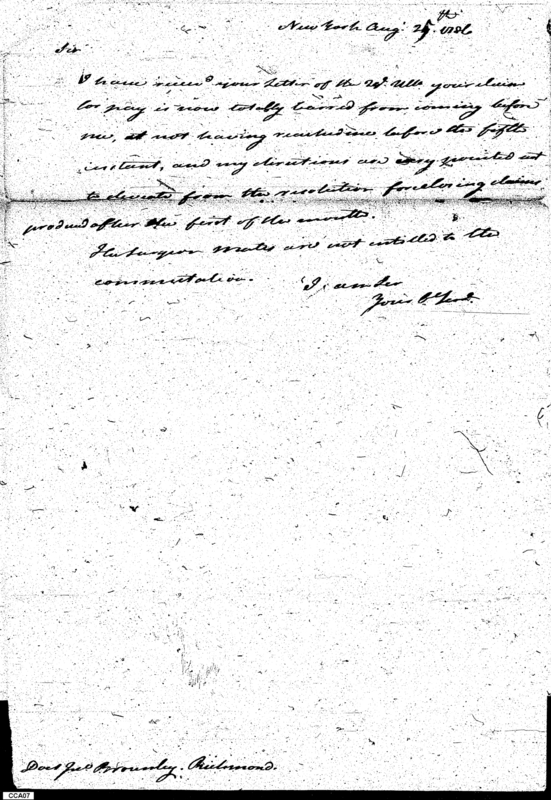 New York Aug. 25th. 1786
Sir
I have receivd your Letter of the 22d. Ulto. your claim
for pay is now totally barred from coming before
me, it not having reached me before the first
instant, and my directions are very pointed not
to deviate from the resolution foreclosing claims
produced after the first of the month.
The Surgeon mates are not entitled to the
commutation.
I am Sir
Your Ob. Servt.
Doct Jno Brownley. Richmond.
CCA07